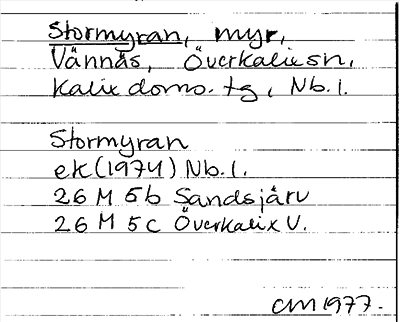 Stormyran, myr,
Vännäs, Överkalix sn,
Kalix doms. tg, Nb. l.
Stormyran
ek (1974) Nb. l.
26 M 5b Sandsjärv
26 M 5c Överkalix V.
CM 1977.